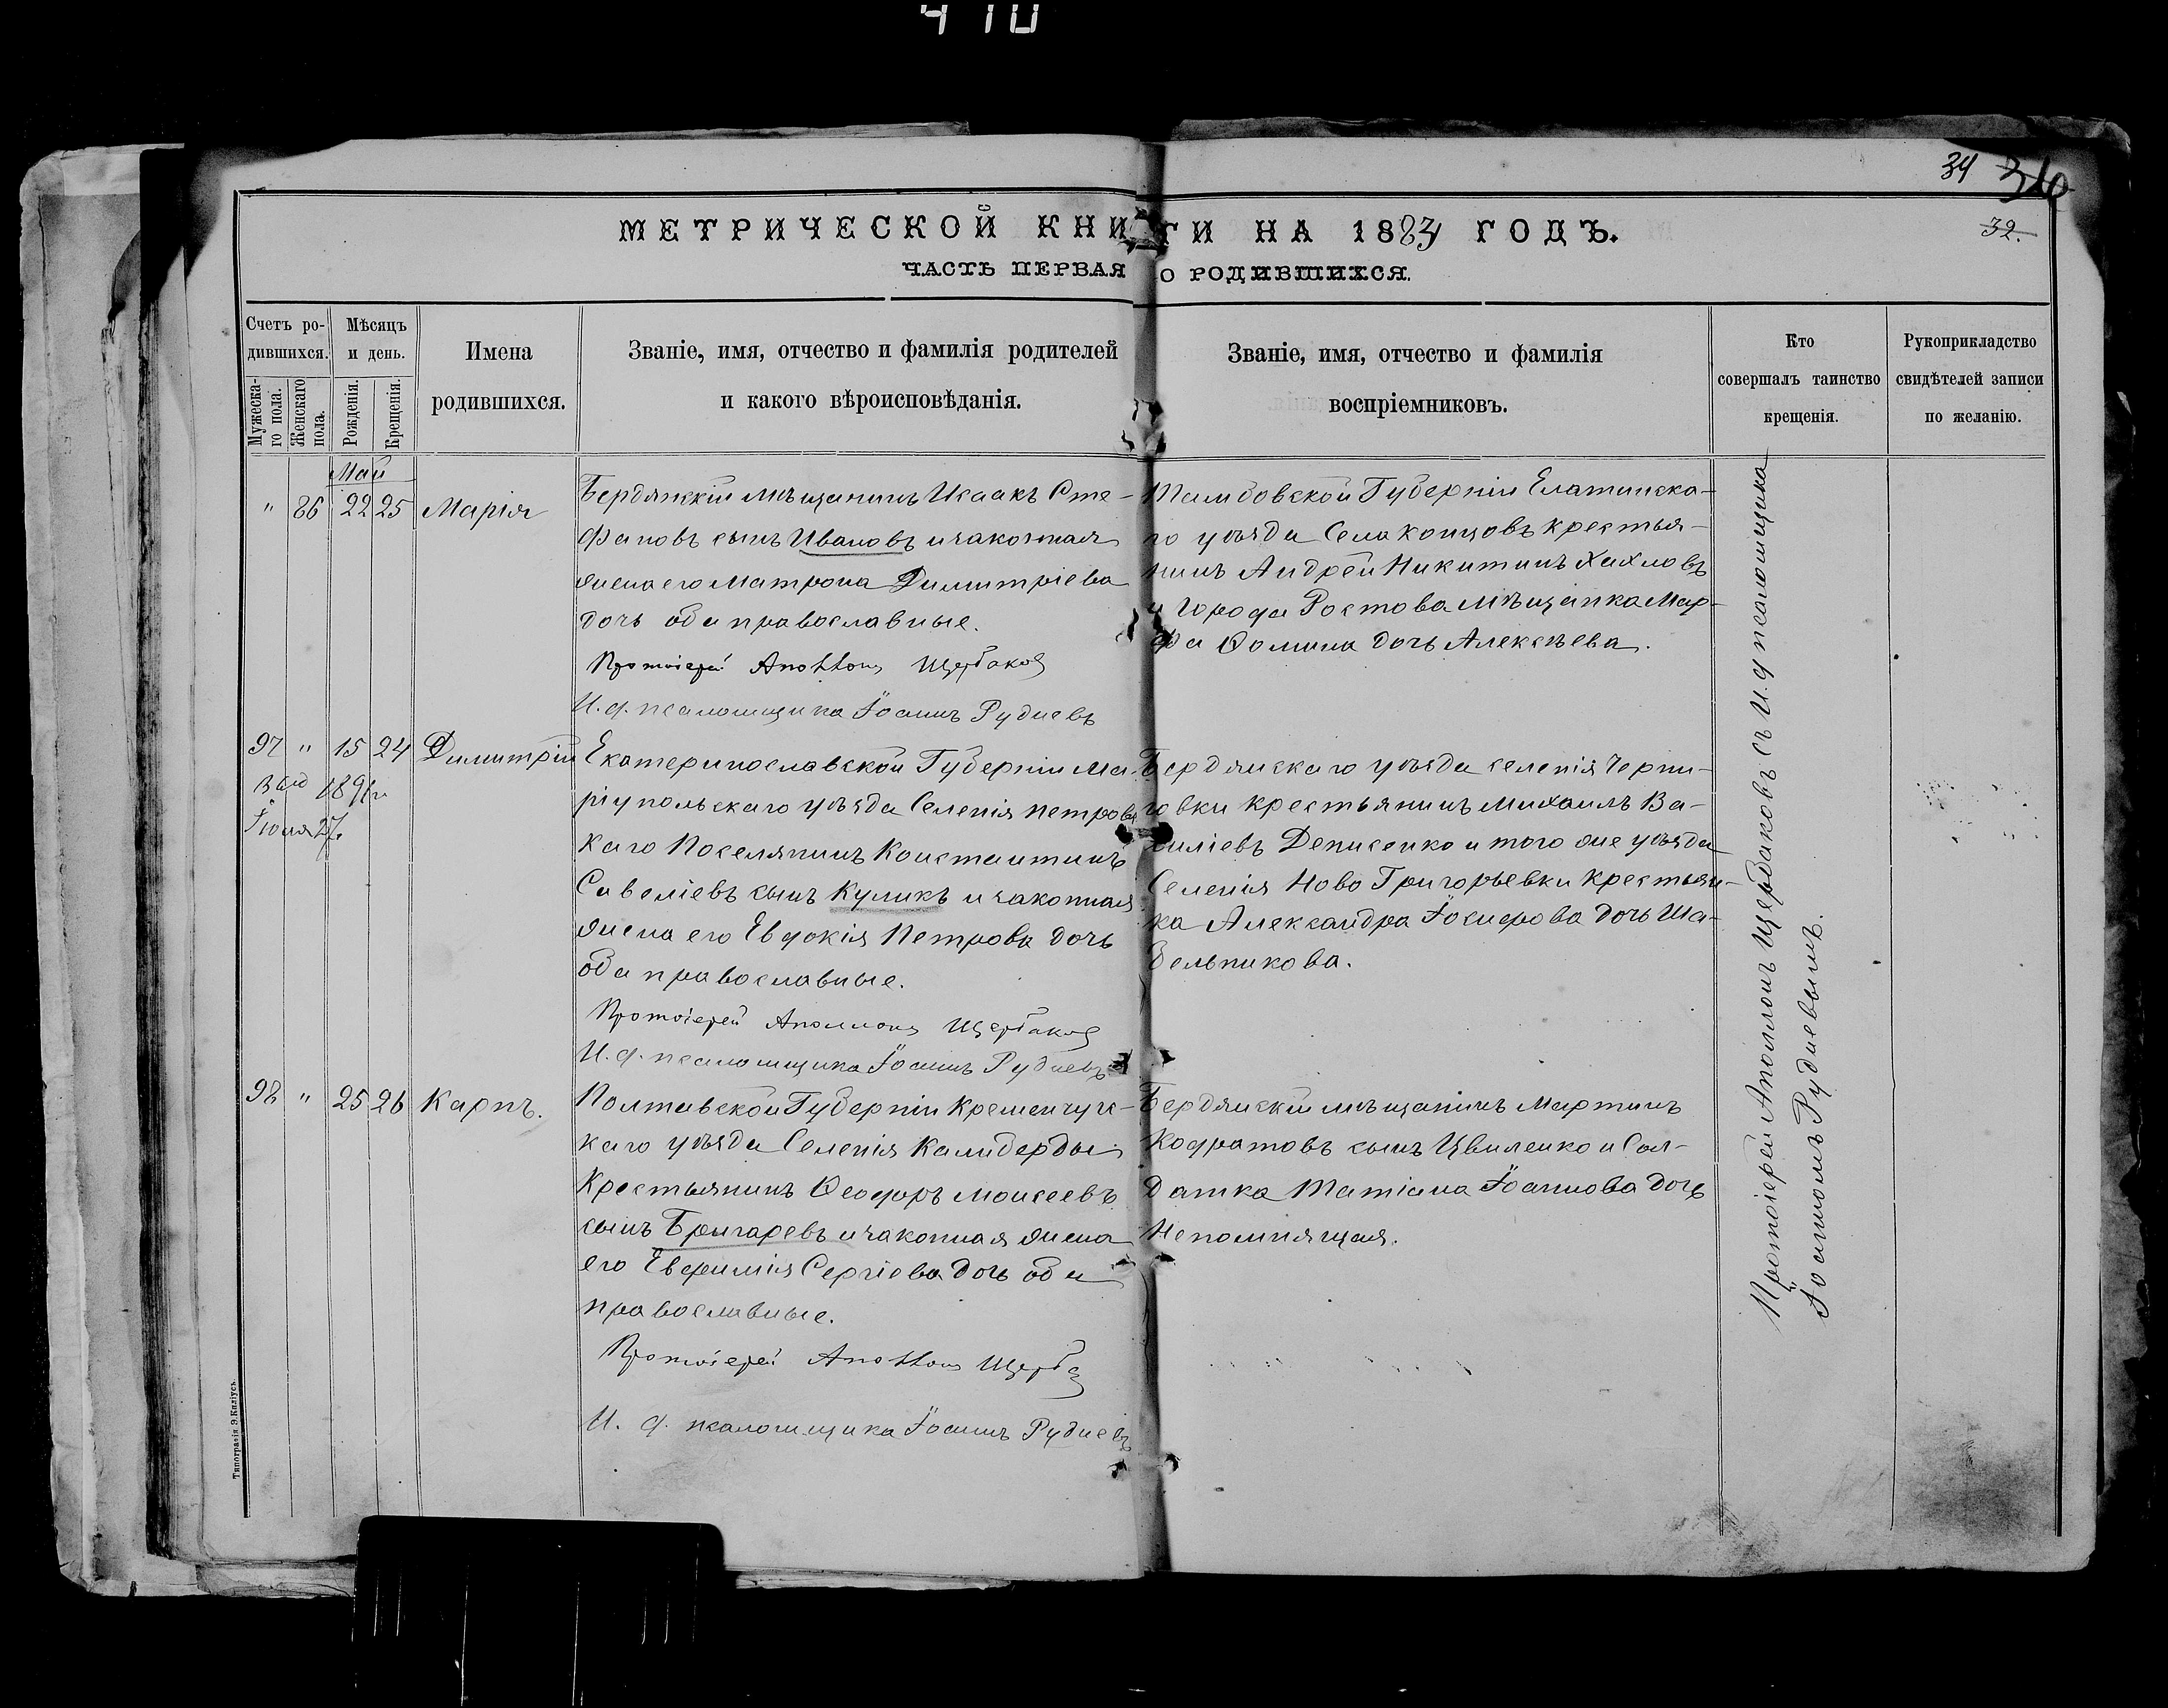 410
34
32.
МЕТРИЧЕСКОЙ КНИГИ НА 1883 ГОДЪ.
ЧАСТЬ ПЕРВАЯ О РОДИВШИХСЯ.
Счетъ ро-
дившихся.
Мужеска-
го пола.
Женскаго
пола.
Мѣсяцъ
и день.
Рожденія.
Крещенія.
Имена
родившихся.
Званіе, имя, отчество и фамилія родителей
и какого вѣроисповѣданія.
Званіе, имя, отчество и фамилія
воспріемниковъ.
Кто
совершалъ таинство
крещенія.
Рукоприкладство
свидѣтелей записи
по желанію.
Май
" 86 22 25 Марія
Бердянскій мѣщанинъ Исаакъ Сте-
фановъ сынъ Ивановъ и законная
жена его Матрона Димитріева
дочь оба православные.
Протоіерей Аполлонъ Щербаковъ
И. д. псаломщика Іоаннъ Рудневъ
Тамбовской Губерніи Елатинска-
го уѣзда Села Концовъ крестья-
нинъ Андрей Никитинъ Хахловъ
и города Ростова Мѣщанка Мар-
фа Ѳомина дочь Алексѣева.
97 " 15 24 Димитрій
1891 г.
Іюля 27.
Екатеринославской Губерніи Ма-
ріупольскаго уѣзда Селенія Петровс
каго Поселянинъ Константинъ
Савеліевъ сынъ Куликъ и законная
жена его Евдокія Петрова дочь
оба православные.
Протоіерей Аполлонъ Щербаковъ
И. д. псаломщика Іоаннъ Рудневъ
Бердянскаго уѣзда селенія Черни-
говки крестьянинъ Михаилъ Ва-
силіевъ Денисенко и того же уѣзда
Селенія Ново Григорьевки крестьян-
ка Александра Іосифова дочь Ша-
бельникова.
98 " 25 26 Карпъ.
Полтавской Губерніи Кременчугс-
каго уѣзда Селенія Камибарды
Крестьянинъ Ѳеодоръ Моисеевъ
сынъ Бригаревъ и законная жена
его Евфимія Сергіева дочь оба
православные.
Протоіерей Аполлонъ Щерб
И. д. псаломщика Іоаннъ Рудневъ
Бердянскій мѣщанинъ Мартинъ
Кодратовъ сынъ Цвиленко и Сол-
датка Татіана Іоаннова дочь
Непомнящая.
Протоіерей Аполлонъ Щербаковъ съ И. д. псаломщика
Іоанномъ Рудневымъ.
Типографія Э. Килiусъ